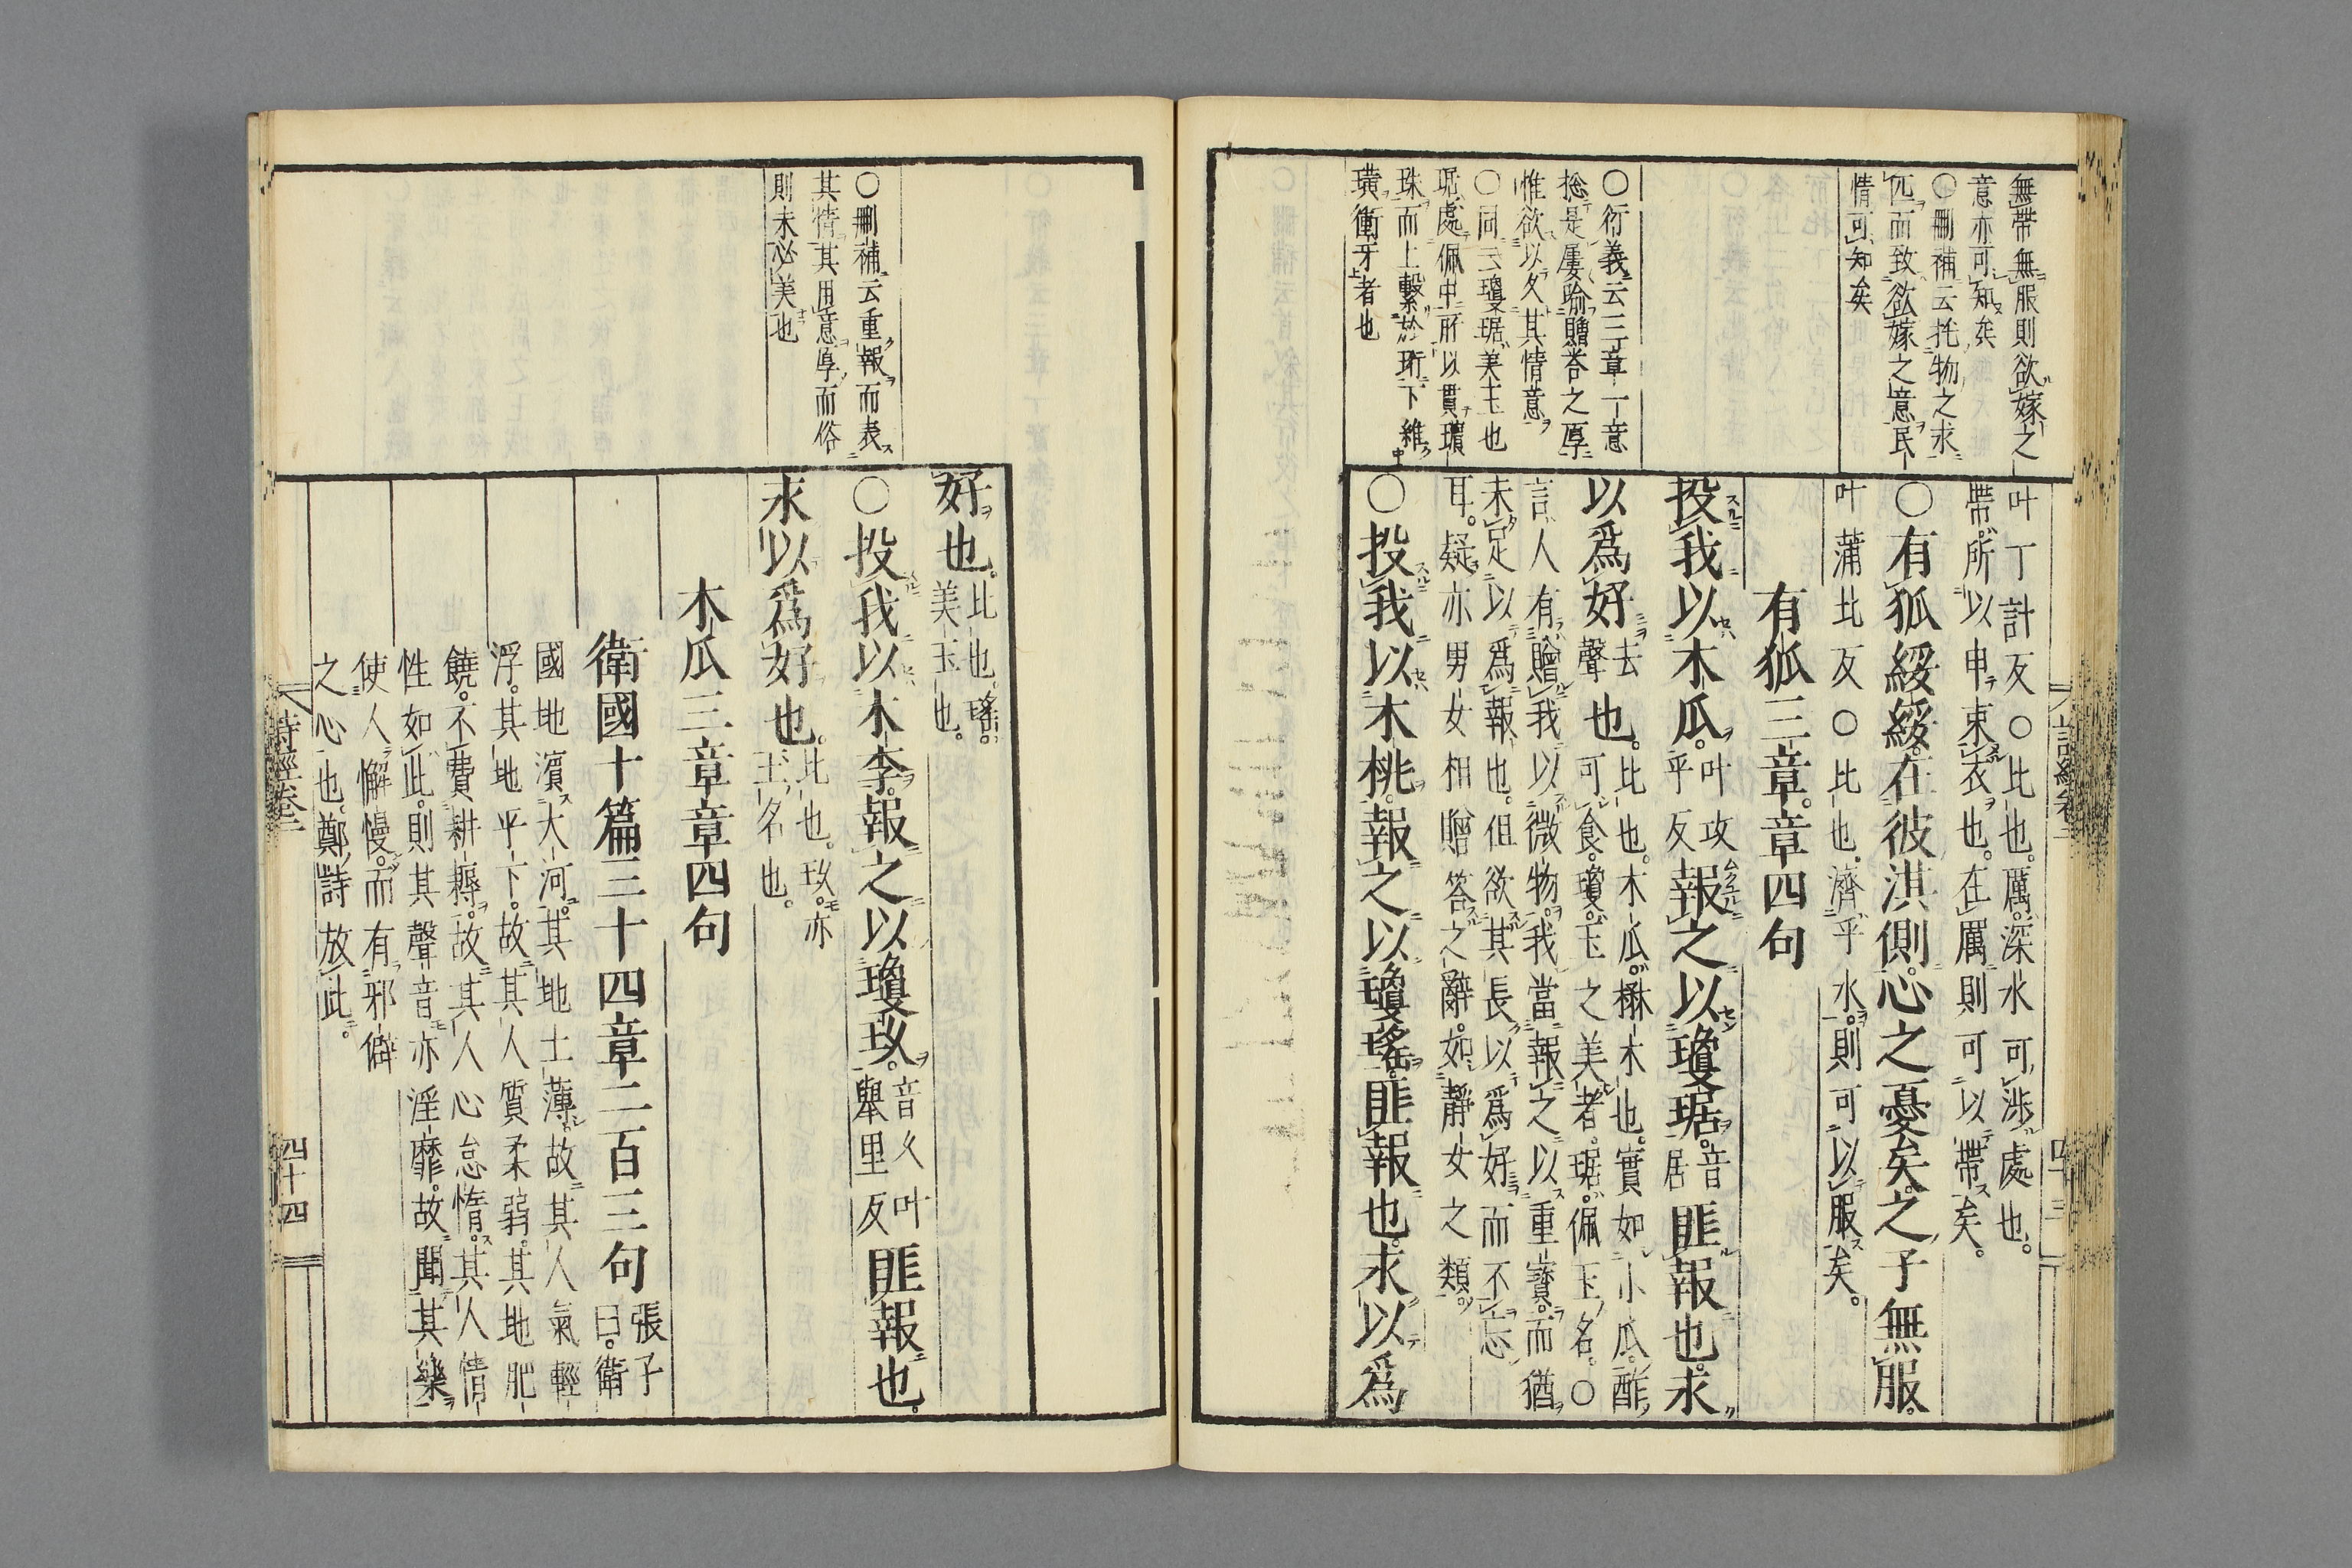 無帶無服則欲嫁之
意亦可知矣
○刪補云托物之求
匹而致欲嫁之意民
情可知矣
○衍義云三章一意
捴是屢喻贈荅之厚
惟欲以久其情意
○同云瓊琚美玉也
琚處佩中所以貫蠙
珠而上繫於珩下維
璜衝牙者也
叶丁計反○比也。厲。深水可渉處也。
帶。所以申束衣也。在厲則可以帶矣。
○有狐綏綏。在彼淇側。心之憂矣。之子無服。
叶蒲北反○比也。濟乎水。則可以服矣。
有狐三章。章四句
投我以木瓜。叶攻乎反報之以瓊琚。音居匪報也。永
以爲好去聲也。比也。木瓜。楙木也。實如小瓜。酢
可食。瓊。玉之美者。琚。佩玉名。○
言人有贈我以微物。我當報之以重寳。而猶
未足以爲報也。但欲其長以爲好而不忘
耳。疑亦男女相贈答之辭。如靜女之類。
○投我以木桃。報之以瓊瑤。匪報也。永以爲
詩經卷二
四十三
○刪補云重報而表
其情其用意厚而俗
則未必美也
好也。比也。瑤。美玉也。
○投我以木李。報之以瓊玖。音久叶舉里反匪報也。
永以爲好也。比也。玖。亦玉名也。
木瓜三章章四句
衛國十篇三十四章二百三句張子曰。衛
國地濵大河。其地土薄。故其人氣輕
浮。其地平下。故其人質柔弱。其地肥
饒。不費耕耨。故其人心怠惰。其人情
性如此。則其聲音亦淫靡。故聞其樂
使人懈慢。而有邪僻
之心也。鄭詩放此。
詩經卷二
四十四